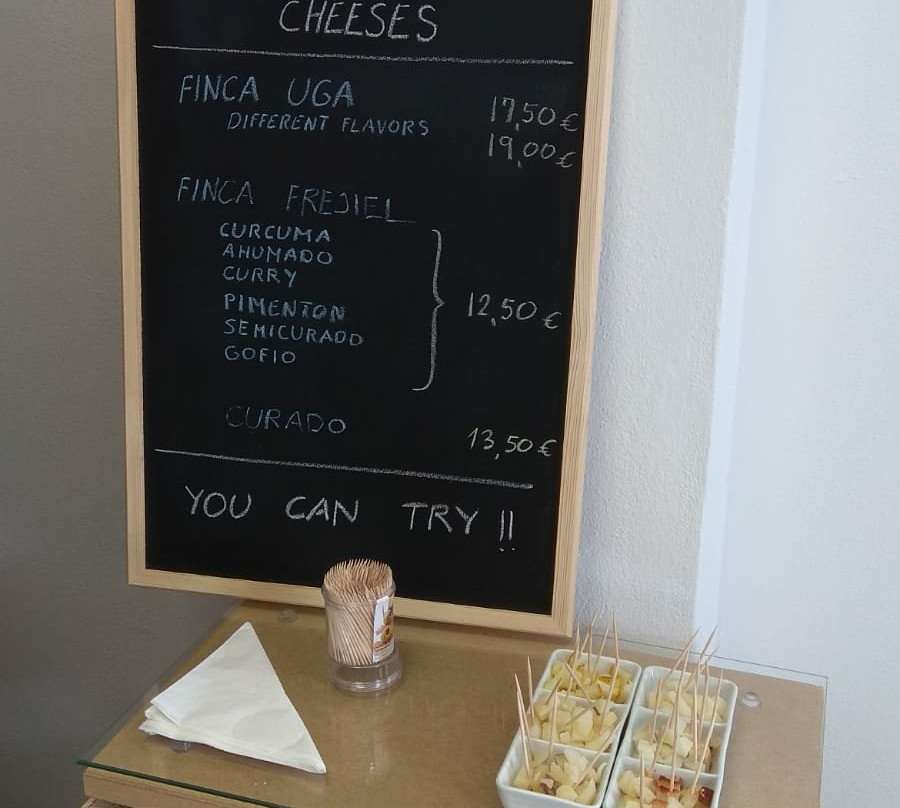 CHEESES
FINCA UGA 17,50€
DIFFERENT FLAVORS 19,00€
FINCA FREJIEL
CURCUMA
AHUMADO
CURRY
PIMENTON 12,50€
SEMICURADO
GOFIO
CURADO 13,50€
YOU CAN TRY !!